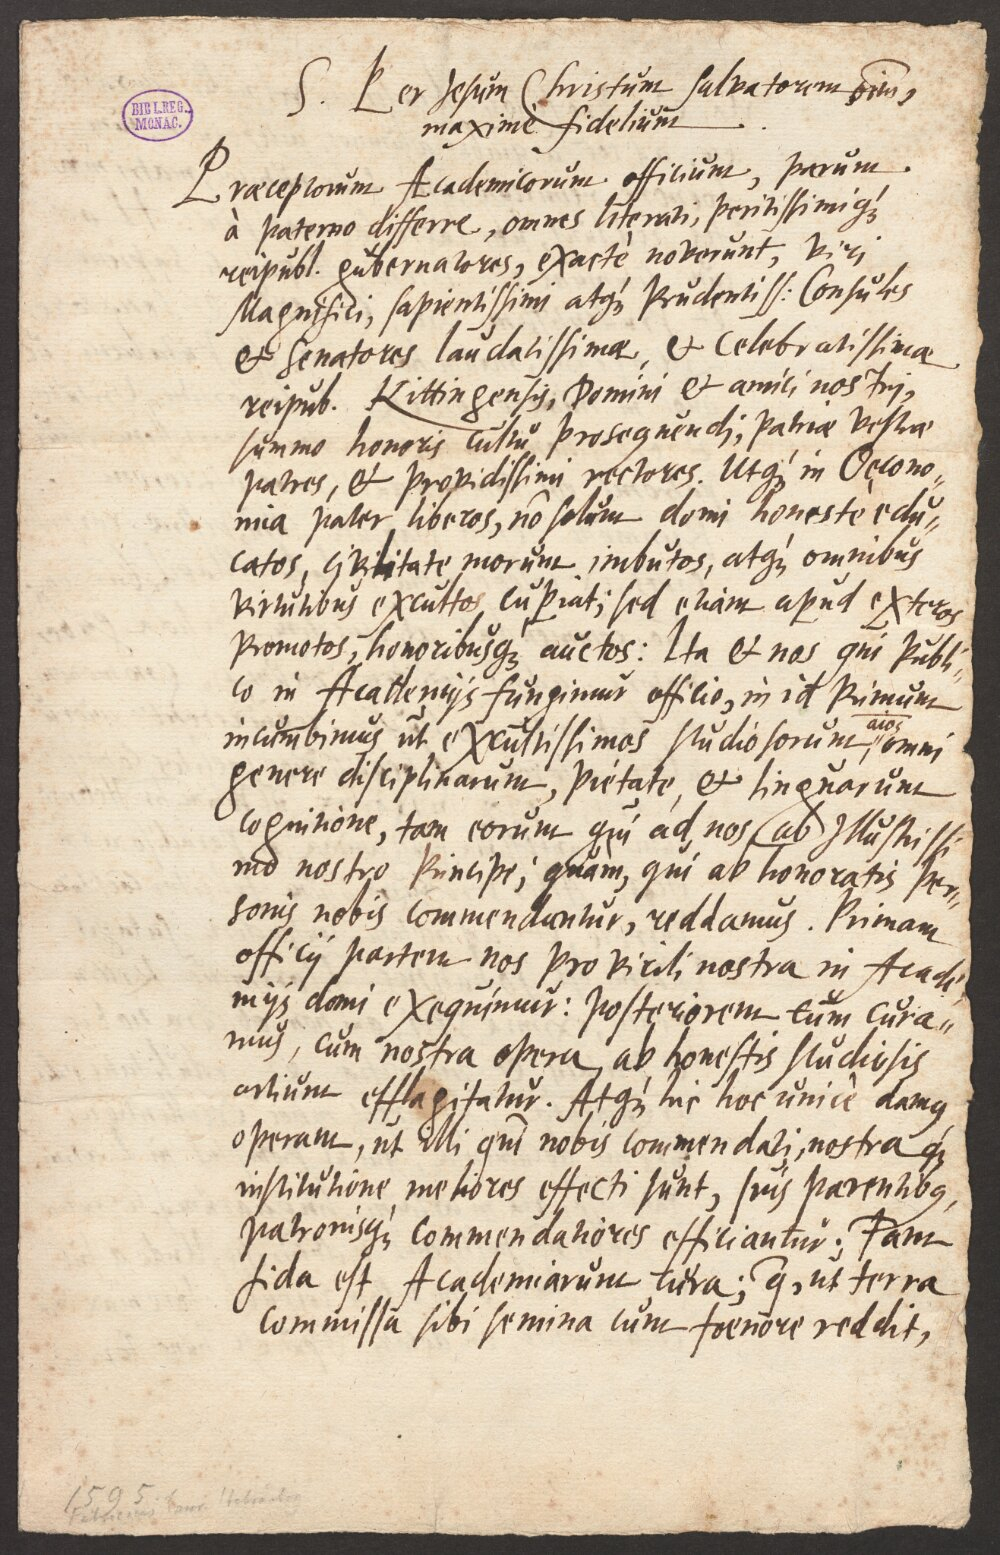 BIBL.REG.
MONAC.
S. Per Jesum Christum Salvatorem oim̅,
maximè fidelium.
Præceptorum Academicorum officium, parum
à paterno differre, omnes literati, peritissimiq́ꝫ
reipubl. gubernatores, exactè noverunt, Viri
Magnifici, sapientissimi atq́ꝫ Prudentiss: Consules
& Senatores laudatissimæ, & Celebratissimæ
reipub. Kittingensis, Domini & amici nostri,
summo honoris cultu prosequendi, patriæ vestræ
patres, & providissimi rectores. Utq́ꝫ in Oecono„
mia pater liberos, nō solum domi honestè edu„
catos, civilitate morum imbutos, atq́ꝫ omnibus
virtutibus excultos cupiat; sed etiam apud exteros
promotos, honoribusq́ꝫ auctos: Ita & nos qui publi„
co in Academijs fungimur officio, in id primum
incumbimus ut excultissimos studiosorum aīos omni
genere disciplinarum, pietate, & linguarum
cognitione, tam eorum qui ad nos ab Illustrissi
mo nostro Principe; quam, qui ab honoratis per„
sonis nobis commendantur, reddamus. Primam
officij partem nos pro virili nostra in Acade„
mijs domi exequimur: posteriorem tum cura„
mus, cum nostra opera ab honestis studiosis
artium efflagitatur. Atq́ꝫ hic hoc unicè damꝰ
operam, ut illi qui nobis commendati, nostraq́ꝫ
institutione meliores effecti sunt, suis parentibꝰ,
patronisq́ꝫ commendatiores efficiantur; Tam
fida est Academiarum cura; q̄, ut terra
commissa sibi semina cum foenore reddit,
1595